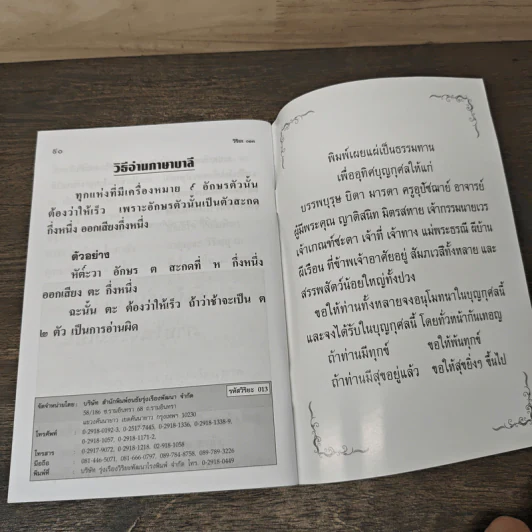 ๕๐
วิธีอ่านภาษาบาลี
ทุกแห่งที่มีเครื่องหมาย ๎ อักษรตัวนั้น
ต้องว่าให้เร็ว เพราะอักษรตัวนั้นเป็นตัวสะกด
กึ่งหนึ่ง ออกเสียงกึ่งหนึ่ง
ตัวอย่าง
หัต๎ะวา อักษร ต สะกดที่ ห กึ่งหนึ่ง
ออกเสียง ตะ กึ่งหนึ่ง
ฉะนั้น ตะ ต้องว่าให้เร็ว ถ้าว่าช้าจะเป็น ต
๒ ตัว เป็นการอ่านผิด
รหัสวิริยะ 013
จัดจำหน่ายโดย : บริษัท สำนักพิมพ์เลี่ยงเชียงพัฒนา จำกัด
58/186 ถ.รามอินทรา 68 ถ.รามอินทรา
แขวงคันนายาว เขตคันนายาว กรุงเทพฯ 10230
โทรศัพท์ : 0-2918-0192-3, 0-2517-7445, 0-2918-1336, 0-2918-1338-9,
0-2918-1057, 0-2918-1171-2,
โทรสาร : 0-2917-9072, 0-2918-1216, 02-918-1058
มือถือ : 081-446-5071, 081-666-0797, 089-784-8758, 089-789-3226
พิมพ์ที่ : บริษัท รุ่งเรืองวิริยะพัฒนาโรงพิมพ์ จำกัด โทร. 0-2918-0449
พิมพ์เผยแผ่เป็นธรรมทาน
เพื่ออุทิศบุญกุศลให้แก่
บรรพบุรุษ บิดา มารดา ครูอุปัชฌาย์ อาจารย์
ผู้มีพระคุณ ญาติสนิท มิตรสหาย เจ้ากรรมนายเวร
เจ้าเกณฑ์ชะตา เจ้าที่ เจ้าทาง แม่พระธรณี ผีบ้าน
ผีเรือน ที่ข้าพเจ้าอาศัยอยู่ สัมภเวสีทั้งหลาย และ
สรรพสัตว์น้อยใหญ่ทั้งปวง
ขอให้ท่านทั้งหลายจงอนุโมทนาในบุญกุศลนี้
และจงได้รับในบุญกุศลนี้ โดยทั่วหน้ากันเทอญ
ถ้าท่านมีทุกข์ ขอให้พ้นทุกข์
ถ้าท่านมีสุขอยู่แล้ว ขอให้สุขยิ่งๆ ขึ้นไป